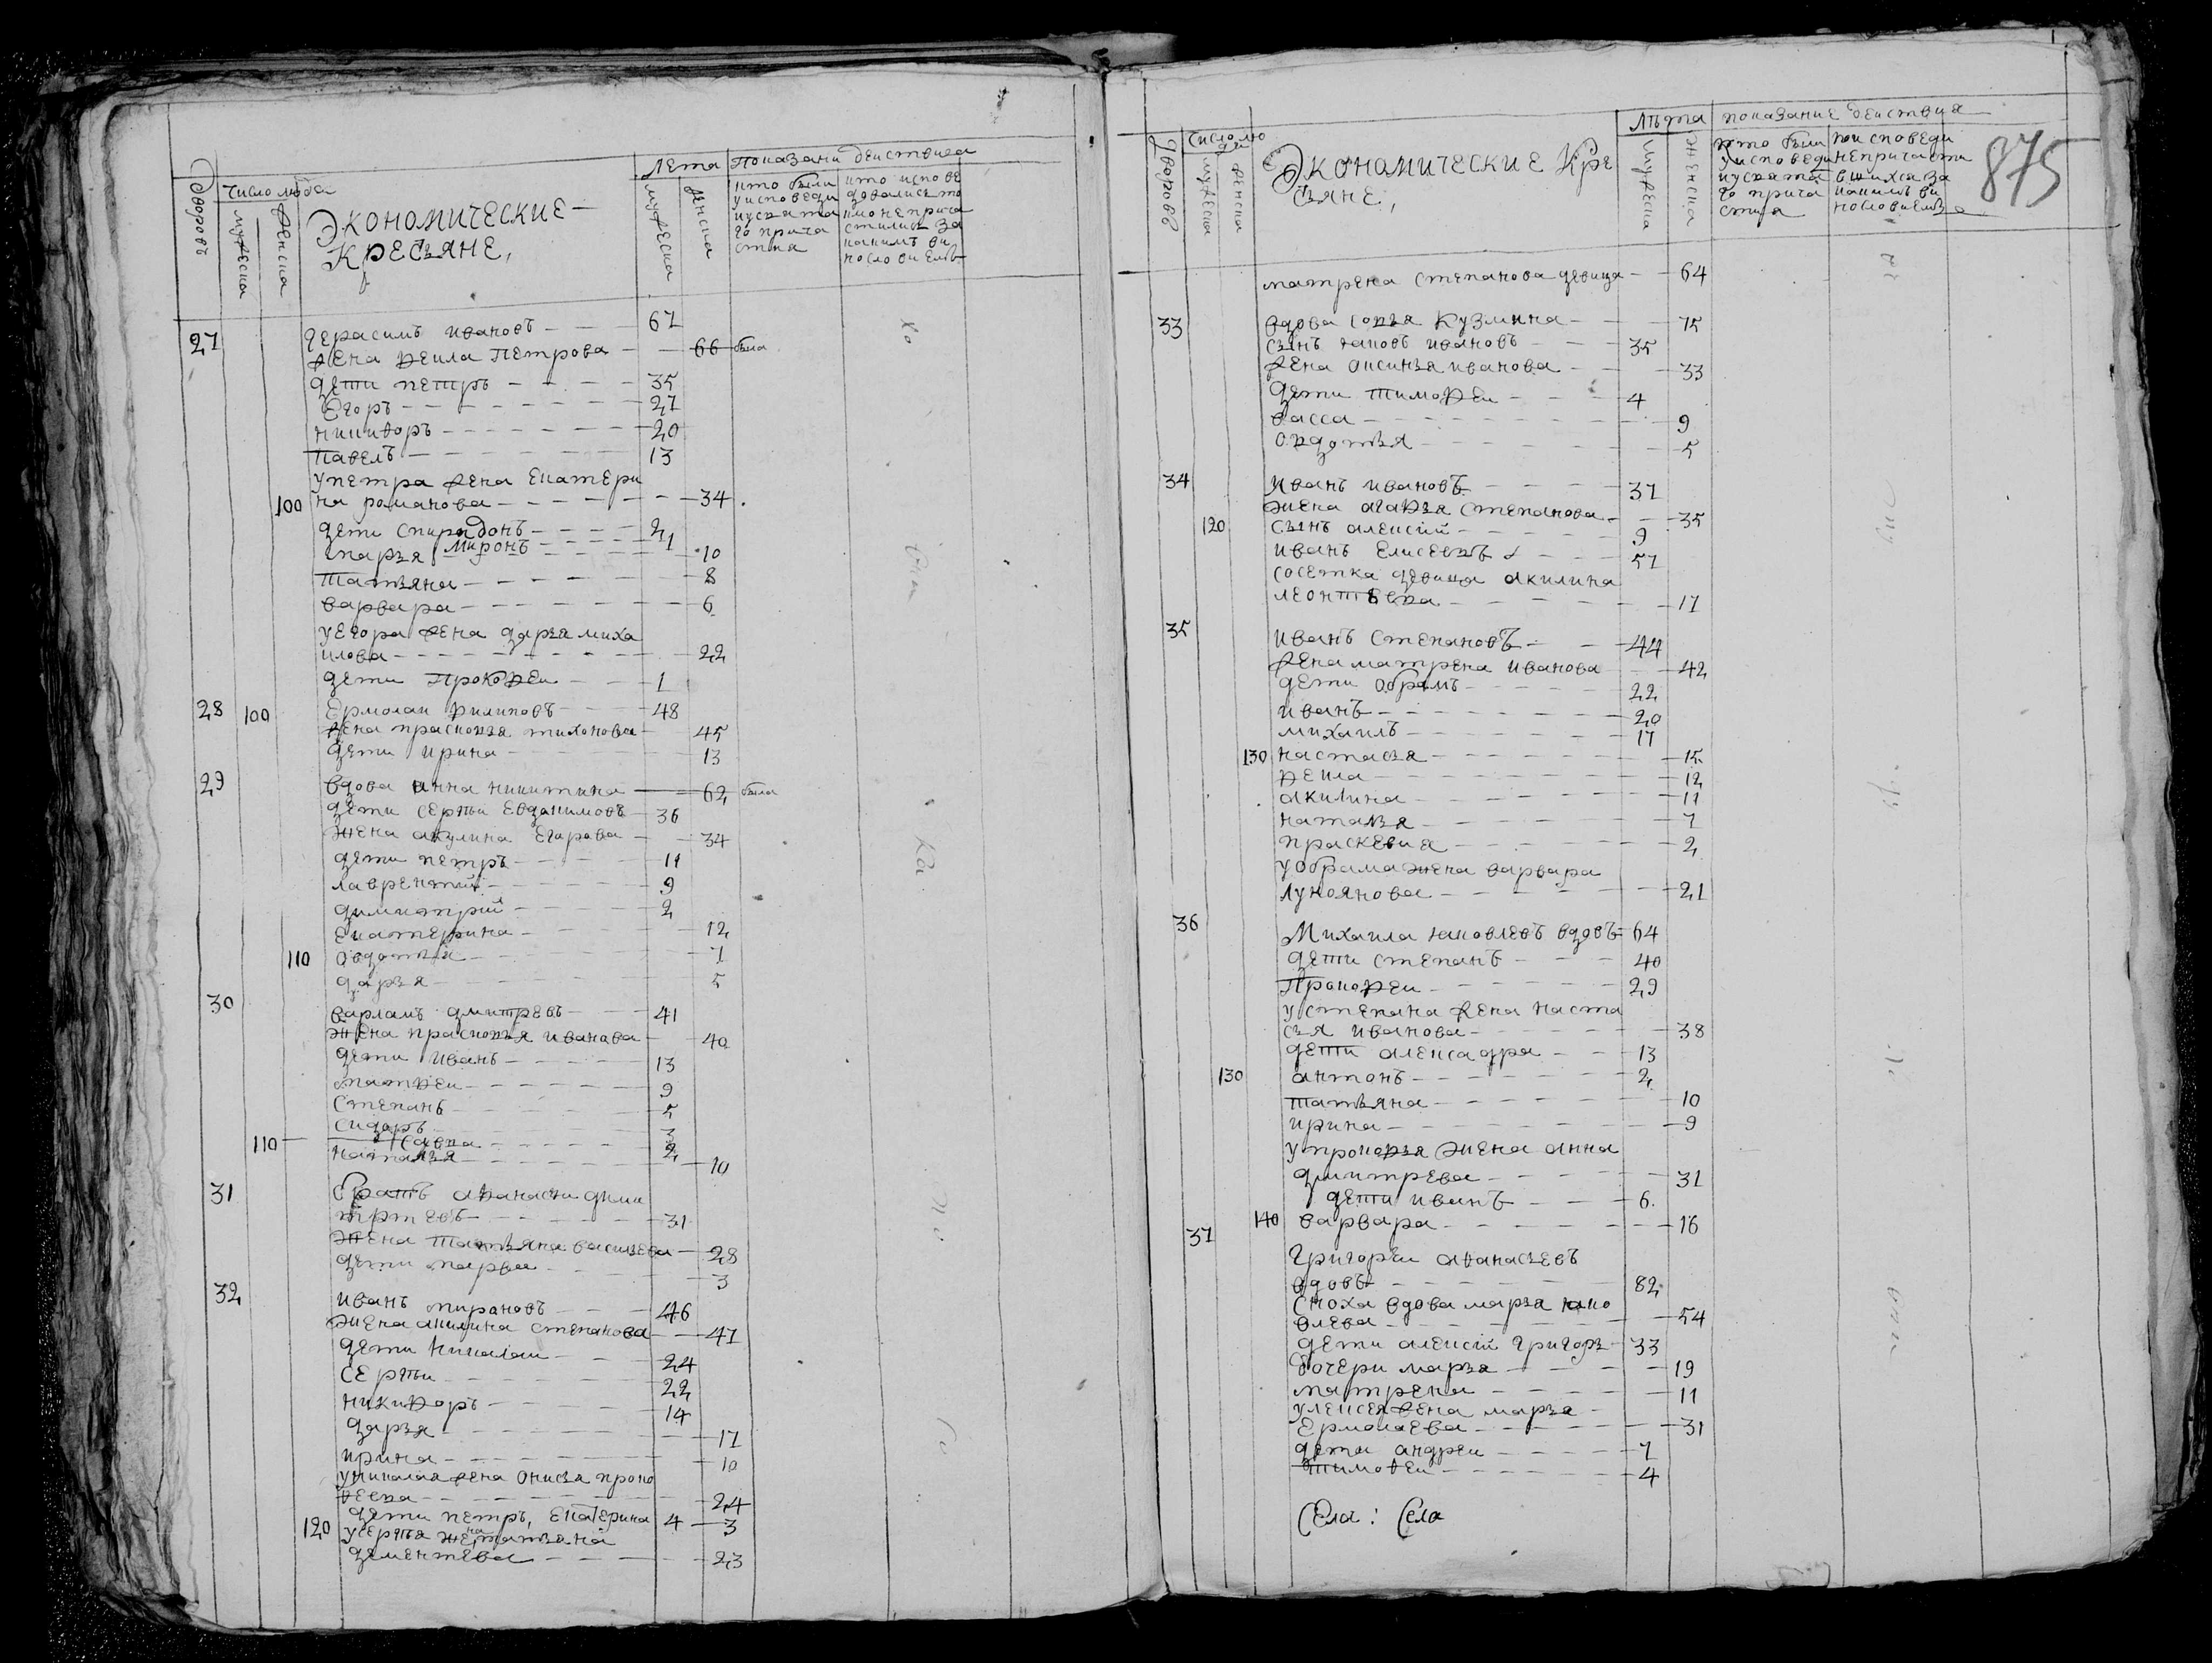 Дворовъ
Число люда
мужеска
женска
Экономические
Кресьяне,
Лета
мужеска
женска
Показани деиствиса
кто были
у исповеди
и у свята
го прича
стия
кто испове
довались то
кмо не прича
стились за
какимъ ви
нословиемъ
27 Герасимъ ивановъ 67
жена фекла Петрова 66 была
дети петръ 35
Егоръ 27
никифоръ 20
павелъ 13
у петра жена Екатери
100 на романова 34
дети спиридонъ 2
миронъ 1
марья 10
татьяна 8
варвара 6
у егора жена дарья миха
илова 22
дети Прокофеи 1
28 100 Ермолаи филиповъ 48
жена прасковья тихонова 45
дети ирина 13
29 вдова анна никитина 62 была
дети сергеи Евдокимовъ 36
жена акулина Егарова 34
дети петръ 11
лаврентий 9
димитрий 2
екатерина 12
110 овдотья 7
дарья 5
30 варламъ дмитревъ 41
жена прасковья иванава 40
дети иванъ 13
матфеи 9
степанъ 5
сидоръ 3
110 савка 2
наталья 10
31 братъ афанасии дми
тртевъ 31
жена татьяна васильева 28
дети марфа 3
32 иванъ мирановъ 46
жена акилина степанова 47
дети николаи 24
сергеи 22
никифоръ 14
дарья 17
ирина 10
у николая жена онисья проко
фева 24
дети петръ, Екатерина 4 3
120 у сергея жена татьяна
дементева 23
875
Дворовъ
Число лю
деи
мужеска
женска
Экономические Кре
сьяне,
Лѣта
мужеска
женска
показание деиствия
кто были
у исповеди
и у свята
го прича
стия
при споведи
не причасти
вшихся за
какимъ ви
нословиемъ
матрена степанова девица 64
33 вдова софья кузмина 75
сынъ яковъ ивановъ 35
жена аксинья иванова 33
дети тимофеи 4
васса 9
овдотья 5
34 Иванъ ивановъ 37
жена агафья степанова 35
120 сынъ алексій 9
иванъ Елисеевъ 57
соседка девица акилина
леонтьева 17
35 иванъ степановъ 44
жена матрена иванова 42
дети обрамъ 22
иванъ 20
михаилъ 17
130 настасья 15
фекла 12
акилина 11
наталья 7
праскевия 2
у обрама жена варвара
лукоянова 21
36 Михаила яковлевъ вдовъ 64
дети степанъ 40
Прокофеи 29
у степана жена наста
сья иванова 38
дети алексадра 13
130 антонъ 2
татьяна 10
ирина 9
у прокофья жена анна
дмитрева 31
дети иванъ 6
140 варвара 16
37 Григореи афанасьевъ
вдовъ 82
сноха вдова марья яко
влева 54
дети алексій григорь 33
дочери марья 19
матрена 11
у алексея жена марья
Ермолаева 31
дети андреи 7
тимофеи 4
Села: Села